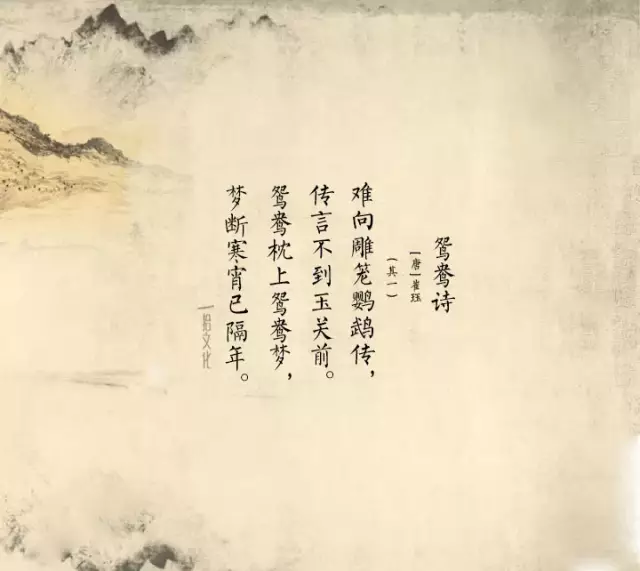 鸳鸯诗
[唐]崔珏
(其一)
难向雕笼鹦鹉传，
传言不到玉关前。
鸳鸯枕上鸳鸯梦，
梦断寒宵已隔年。
一拾文化